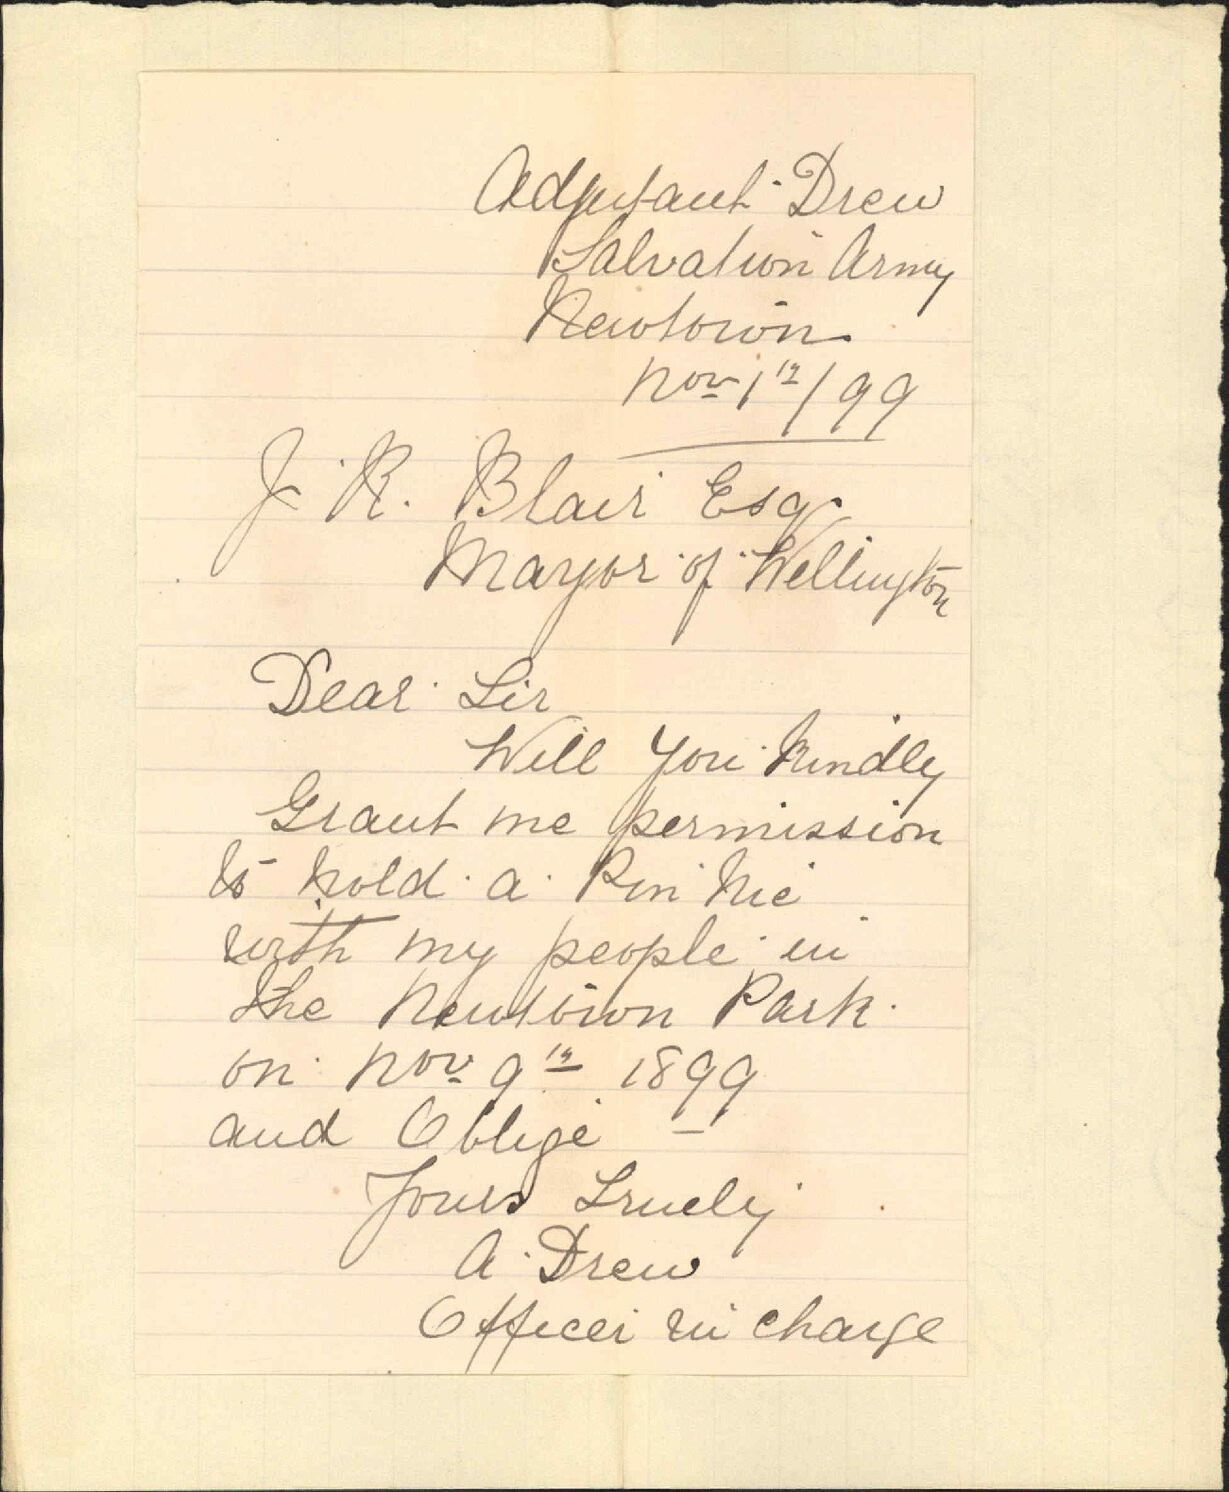 Adjutant Drew
Salvation Army
Newtown
Nov 1th/99
J. R. Blair Esq
Mayor of Wellington
Dear Sir
Will You Kindly
Grant me permission
to hold a Pin Nic
with my people in
the Newtown Park
on Nov 9th 1899
and Oblige
Yours Truely
A Drew
Officer in charge